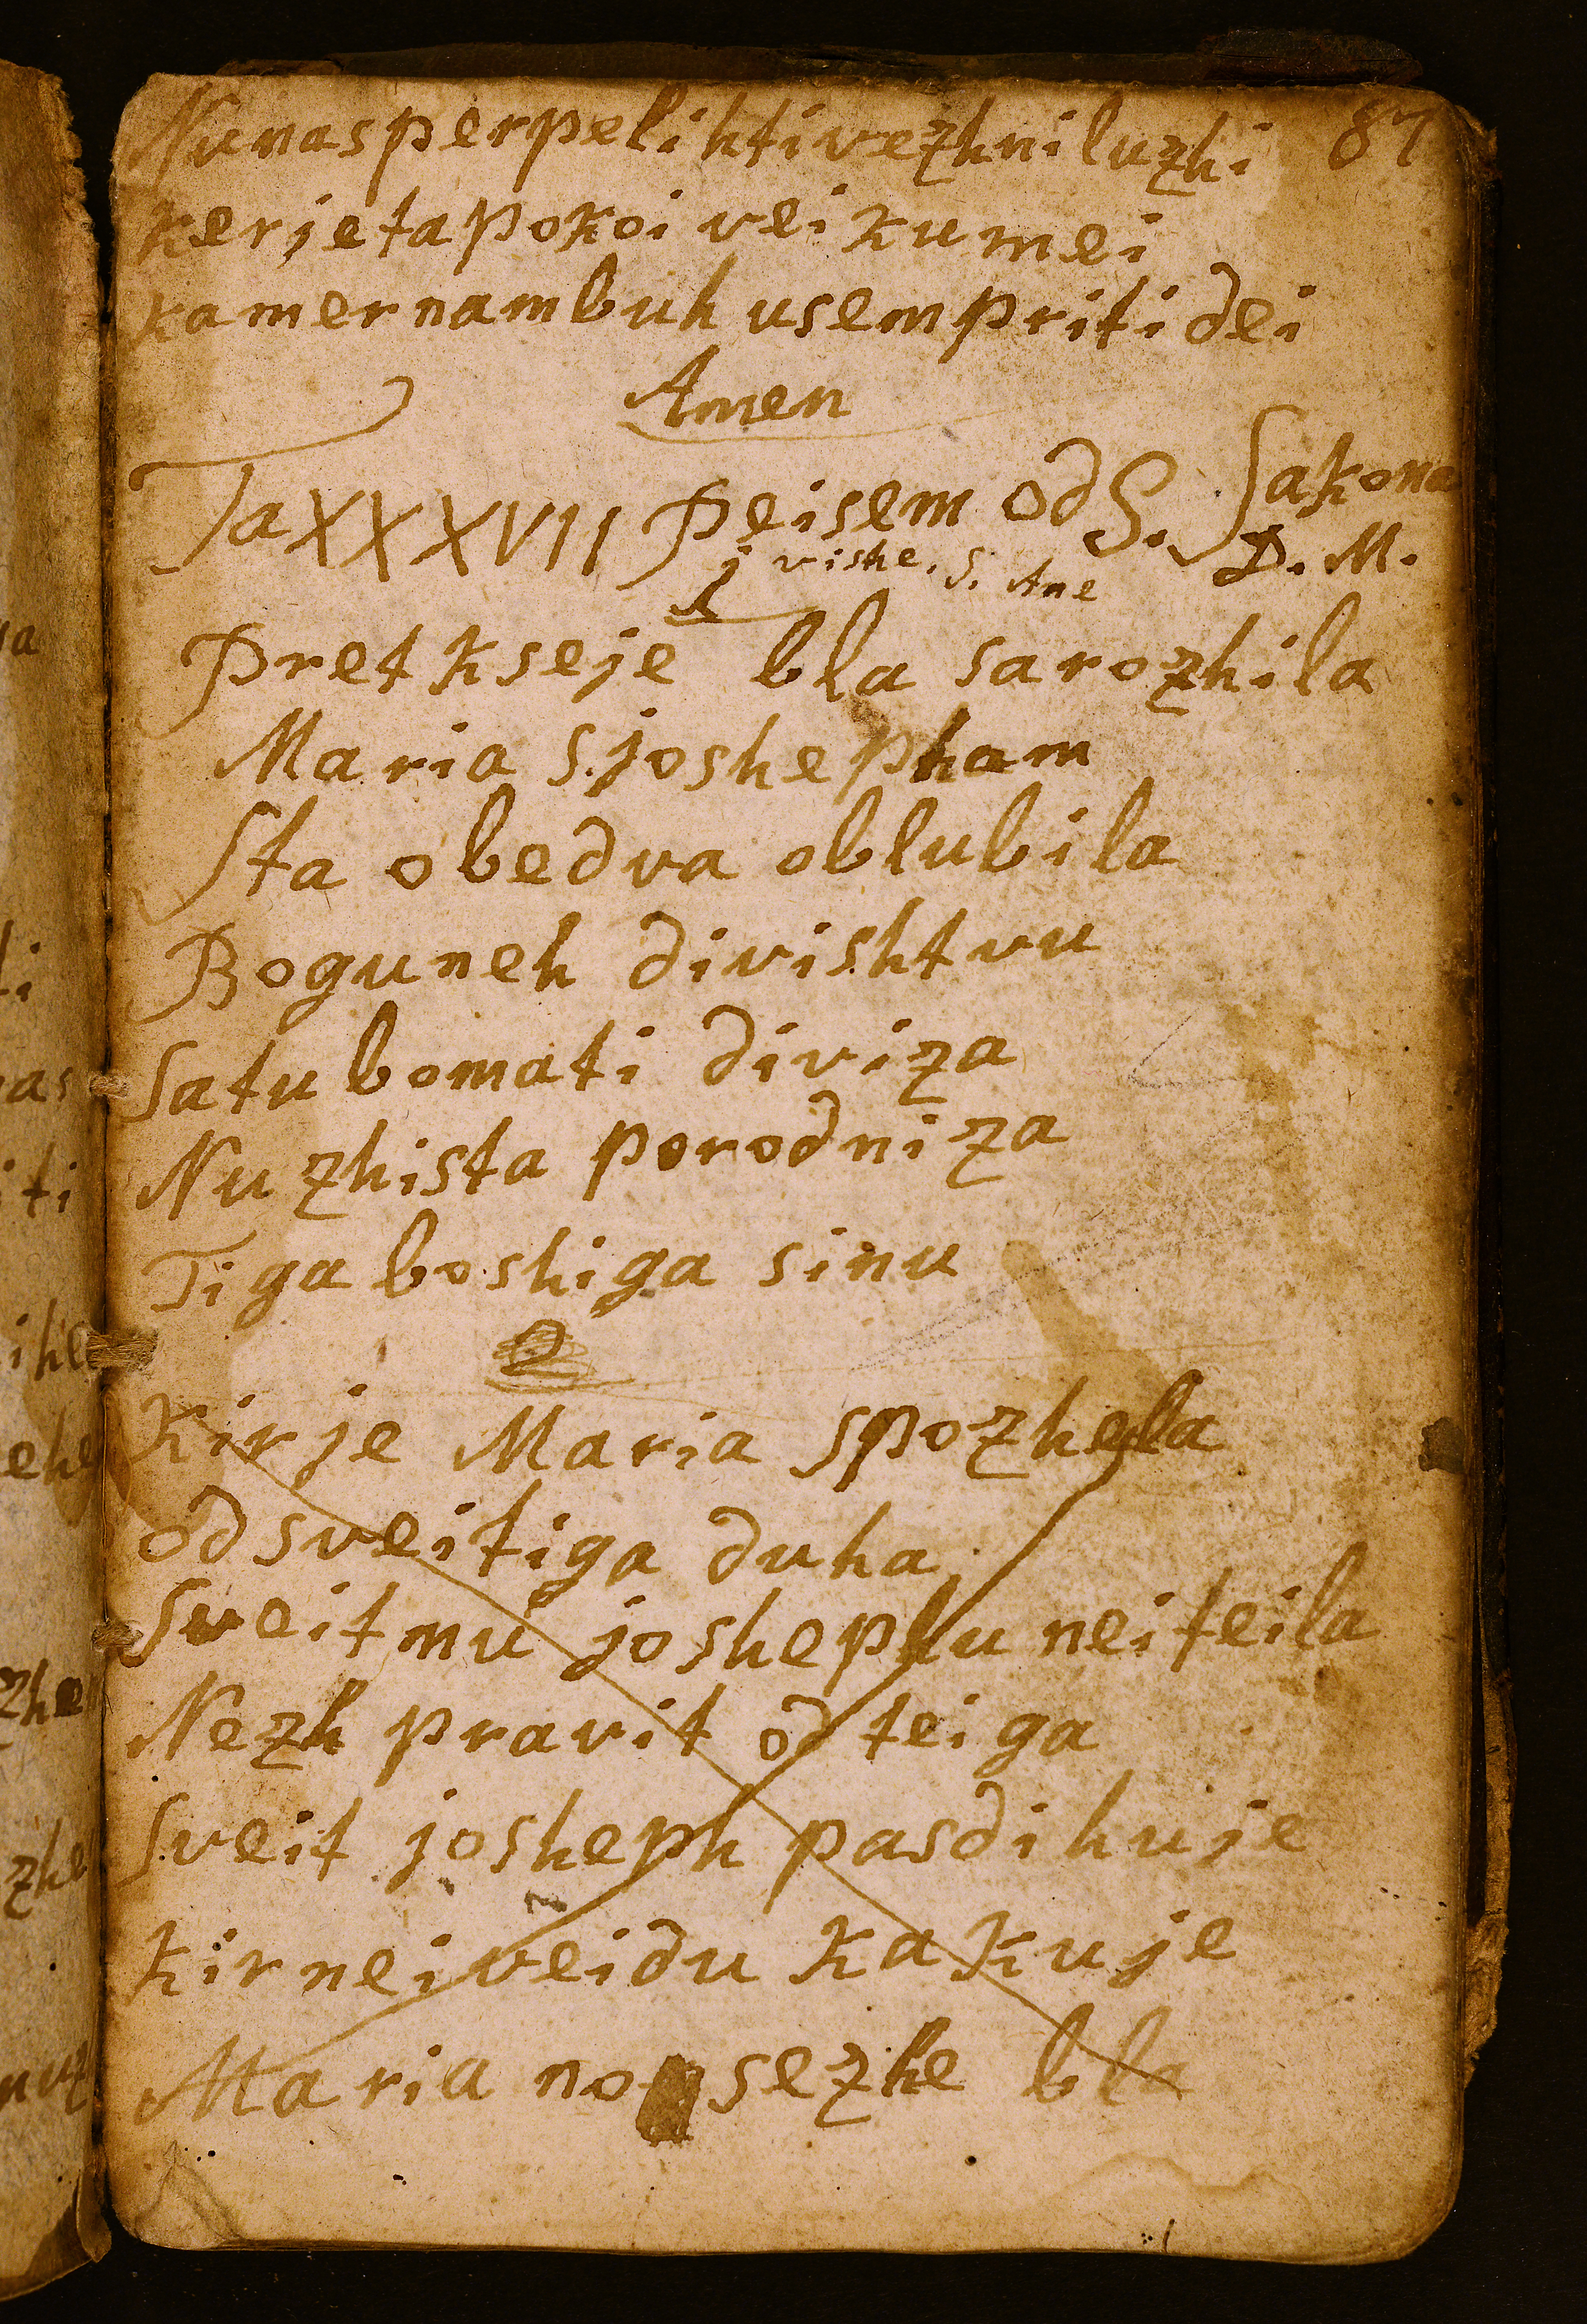 Nu nas perpelihti vezhni luzhi 87
ker je ta pokoi veikumei
kamer nam buh usem priti dei
Amen
Ta XXXVII Peisem od S. Sakona
j vishe. S. Ane D. M.
1
Pretkseje bla sarozhila
Maria S. joshepham
Sta obedva oblubila
Bogu neh divishtvu
Satu bo mati diviza
Nu zhista porodniza
Tiga boshiga sinu
2
Kir je Maria spozhela
od sveitiga duha
Sveitmu joshephu nei teila
Nezh pravit od teiga
Sveit josheph pasdihuje
kir nei veidu kakuje
Maria nosezhe bla